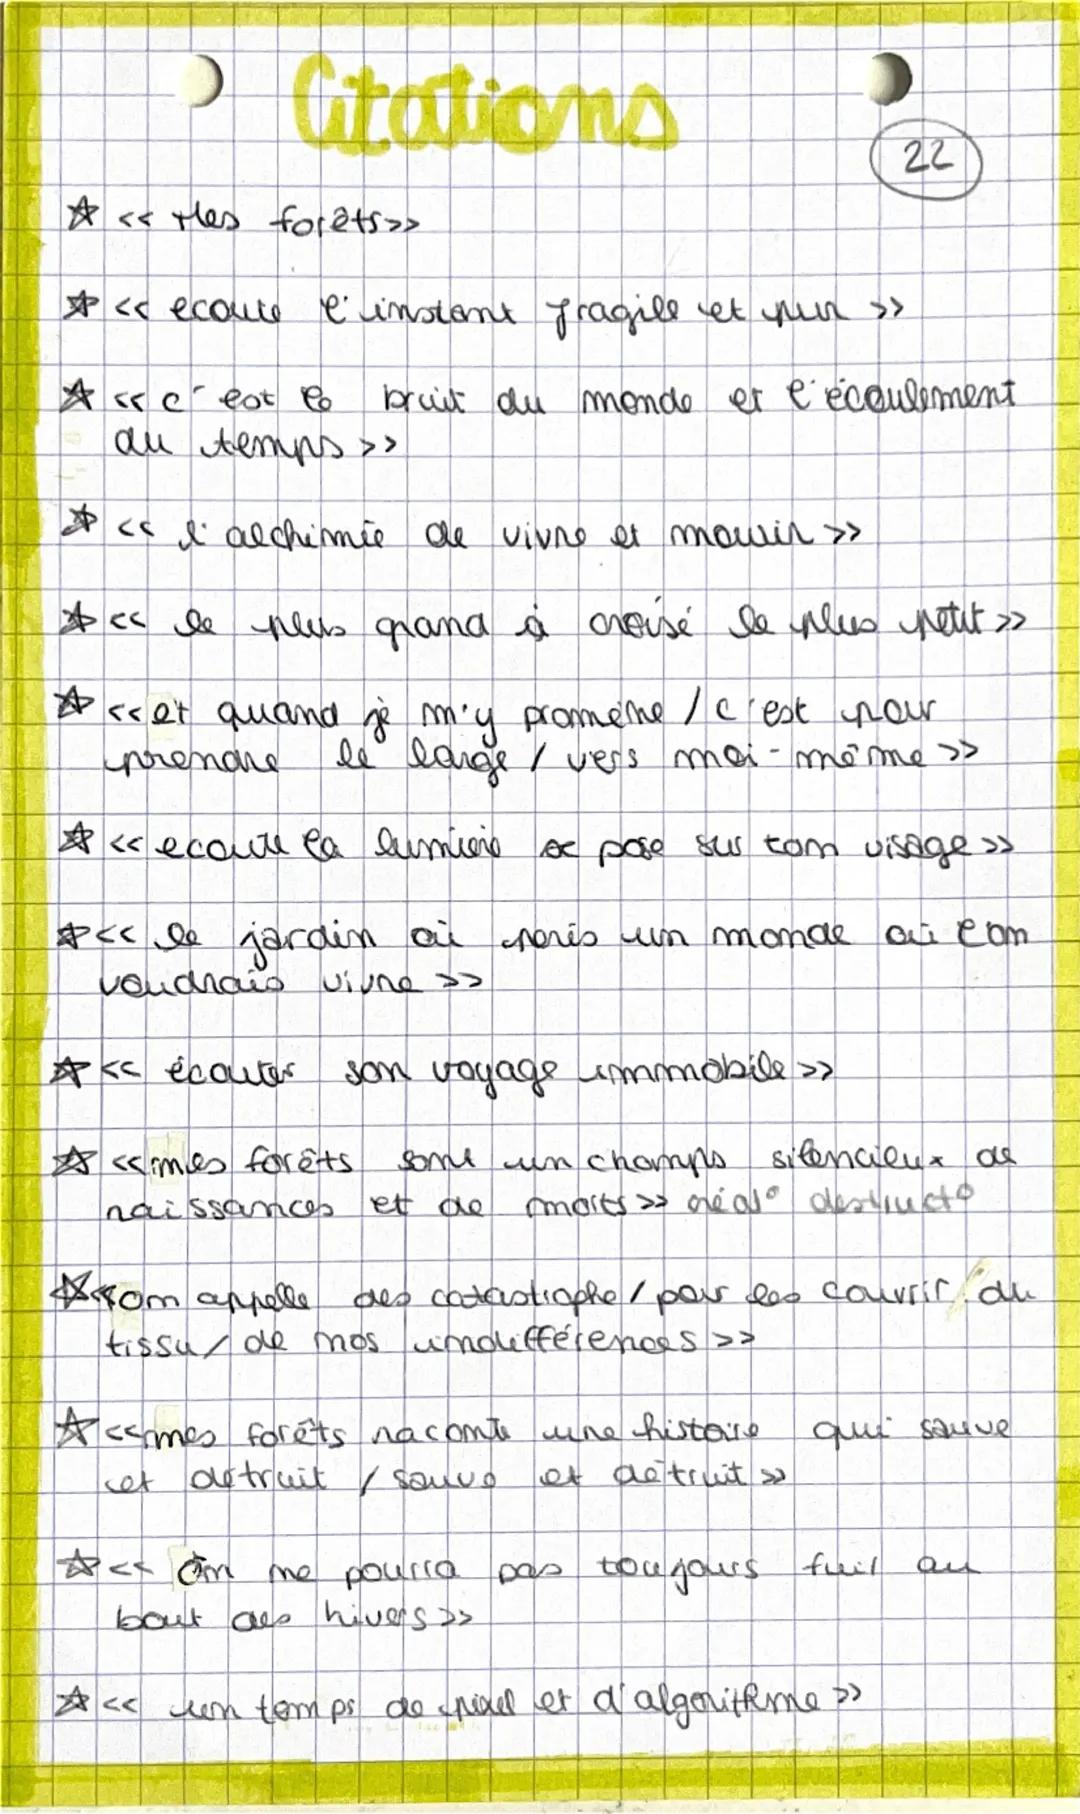 Citations
22
☆ << Mes forêts>>
☆ << ecoute l'instant fragile et pur >>
☆ << c'est le bruit du monde et l'écoulement
du temps >>
☆ << l'alchimie de vivre et mourir >>
☆ << le plus grand à croisé le plus petit >>
☆ <<et quand je m'y promène / c'est pour
prendre le large / vers moi-même >>
☆ << ecoute la lumière se pose sur ton visage >>
☆ << le jardin où péris un monde où l'on
voudrais vivre >>
☆ << écouter son voyage immobile >>
☆ <<mes forêts sont un champs silencieux de
naissances et de morts >> créat° destruct°
☆ <<on appelle des catastrophe / pour les couvrir / du
tissu / de nos indifférences >>
☆ <<mes forêts raconte une histoire qui sauve
et détruit / sauve et détruit >>
☆ << On ne pourra pas toujours fuir au
bout des hivers >>
☆ << un temps de pixel et d'algorithme >>